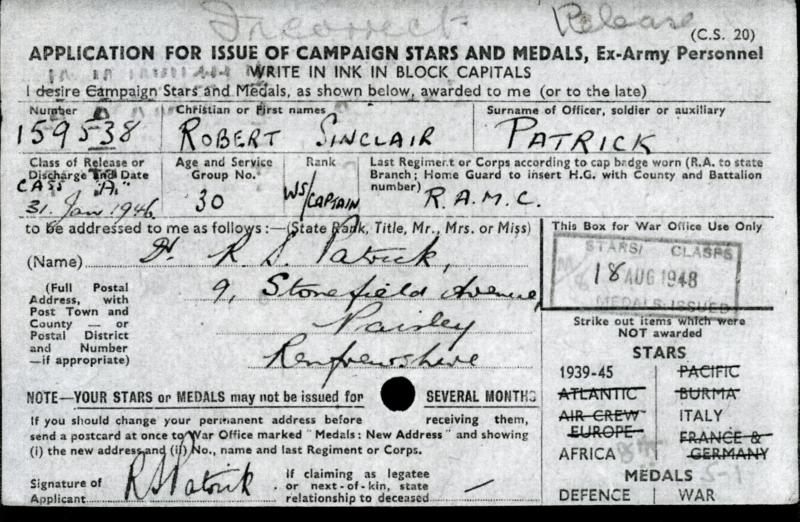 Incorrect Release
(C.S. 20)
APPLICATION FOR ISSUE OF CAMPAIGN STARS AND MEDALS, Ex-Army Personnel
WRITE IN INK IN BLOCK CAPITALS
I desire Campaign Stars and Medals, as shown below, awarded to me (or to the late)
Number Christian or First names Surname of Officer, soldier or auxiliary
159538 ROBERT SINCLAIR PATRICK
Class of Release or Discharge and Date Age and Service Group No. Rank Last Regiment or Corps according to cap badge worn (R.A. to state Branch; Home Guard to insert H.G. with County and Battalion number)
CLASS "A" 31. Jan 1946 30 WS/CAPTAIN R.A.M.C.
to be addressed to me as follows:—(State Rank, Title, Mr., Mrs. or Miss)
(Name) Dr. R. S. Patrick,
(Full Postal Address, with Post Town and County — or Postal District and Number —if appropriate)
9, Stonefield Avenue,
Paisley
Renfrewshire
This Box for War Office Use Only
STARS/ CLASPS
18 AUG 1948
MEDALS ISSUED
Strike out items which were
NOT awarded
STARS
1939-45 PACIFIC
ATLANTIC BURMA
AIR CREW ITALY
EUROPE FRANCE &
AFRICA 8th GERMANY
MEDALS
DEFENCE WAR
NOTE—YOUR STARS or MEDALS may not be issued for SEVERAL MONTHS
If you should change your permanent address before receiving them,
send a postcard at once to War Office marked "Medals: New Address" and showing
(i) the new address and (ii) No., name and last Regiment or Corps.
Signature of Applicant R S Patrick If claiming as legatee or next-of-kin, state relationship to deceased —